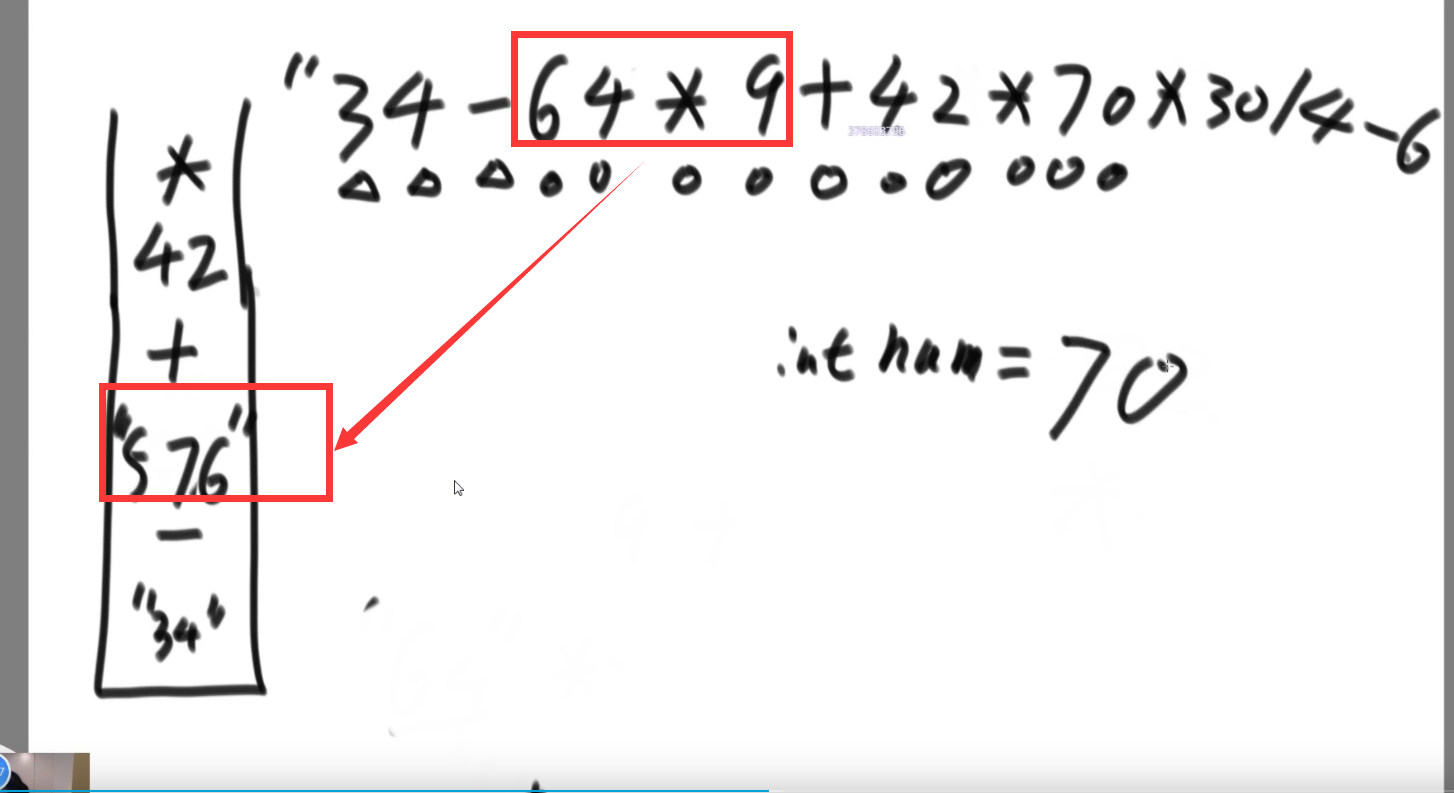 "34-64*9+42*70*30/4-6
*
42
+
"576"
-
"34"
int num=70